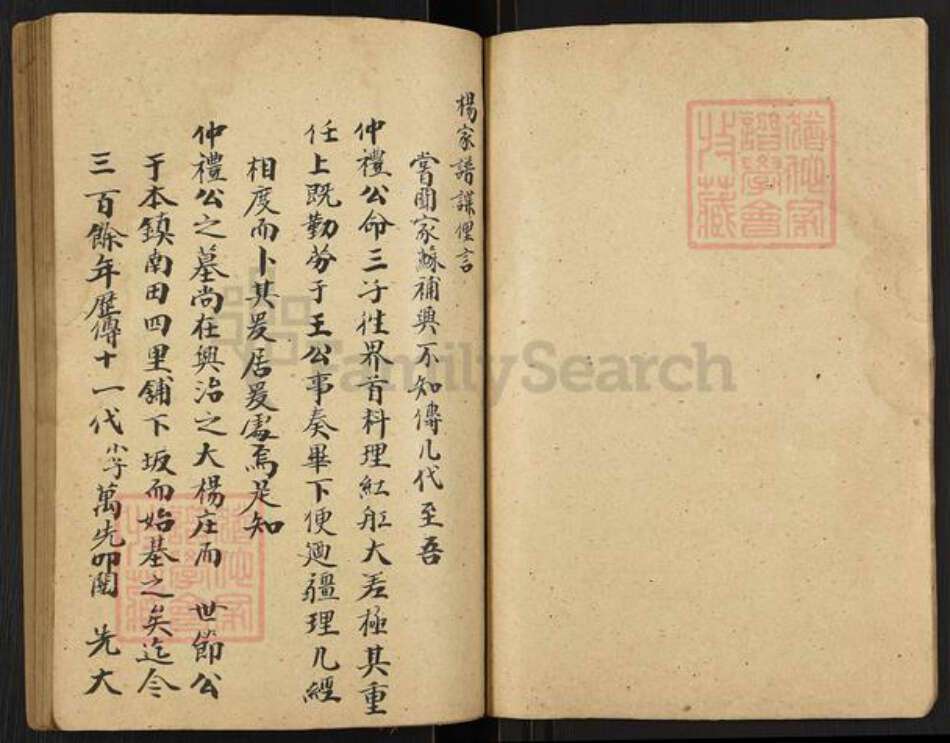 楊家譜諜俚言
嘗聞家蘇補興不知傳几代至吾
仲禮公命三子往界首料理紅船大差極其重
任上既勤勞于王公事奏畢下便廻疆理几經
相度而卜其爰居爰處焉足知
仲禮公之墓尚在興治之大楊庄而 世節公
于本鎮南田四里舖下坂而始基之矣迄今
三百餘年歷傳十一代小子萬先叩闗 先大
FamilySearch